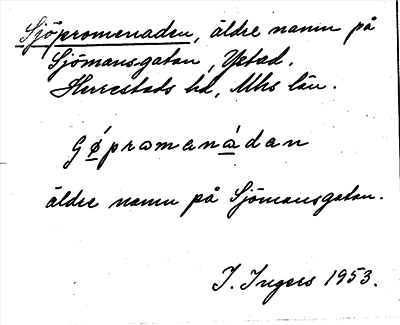 Sjöpromenaden, äldre namn på
Sjömansgatan, Ystad,
Herrestads hd, Mhs län.
äldre namn på Sjömansgatan.
I. Ingers 1953.